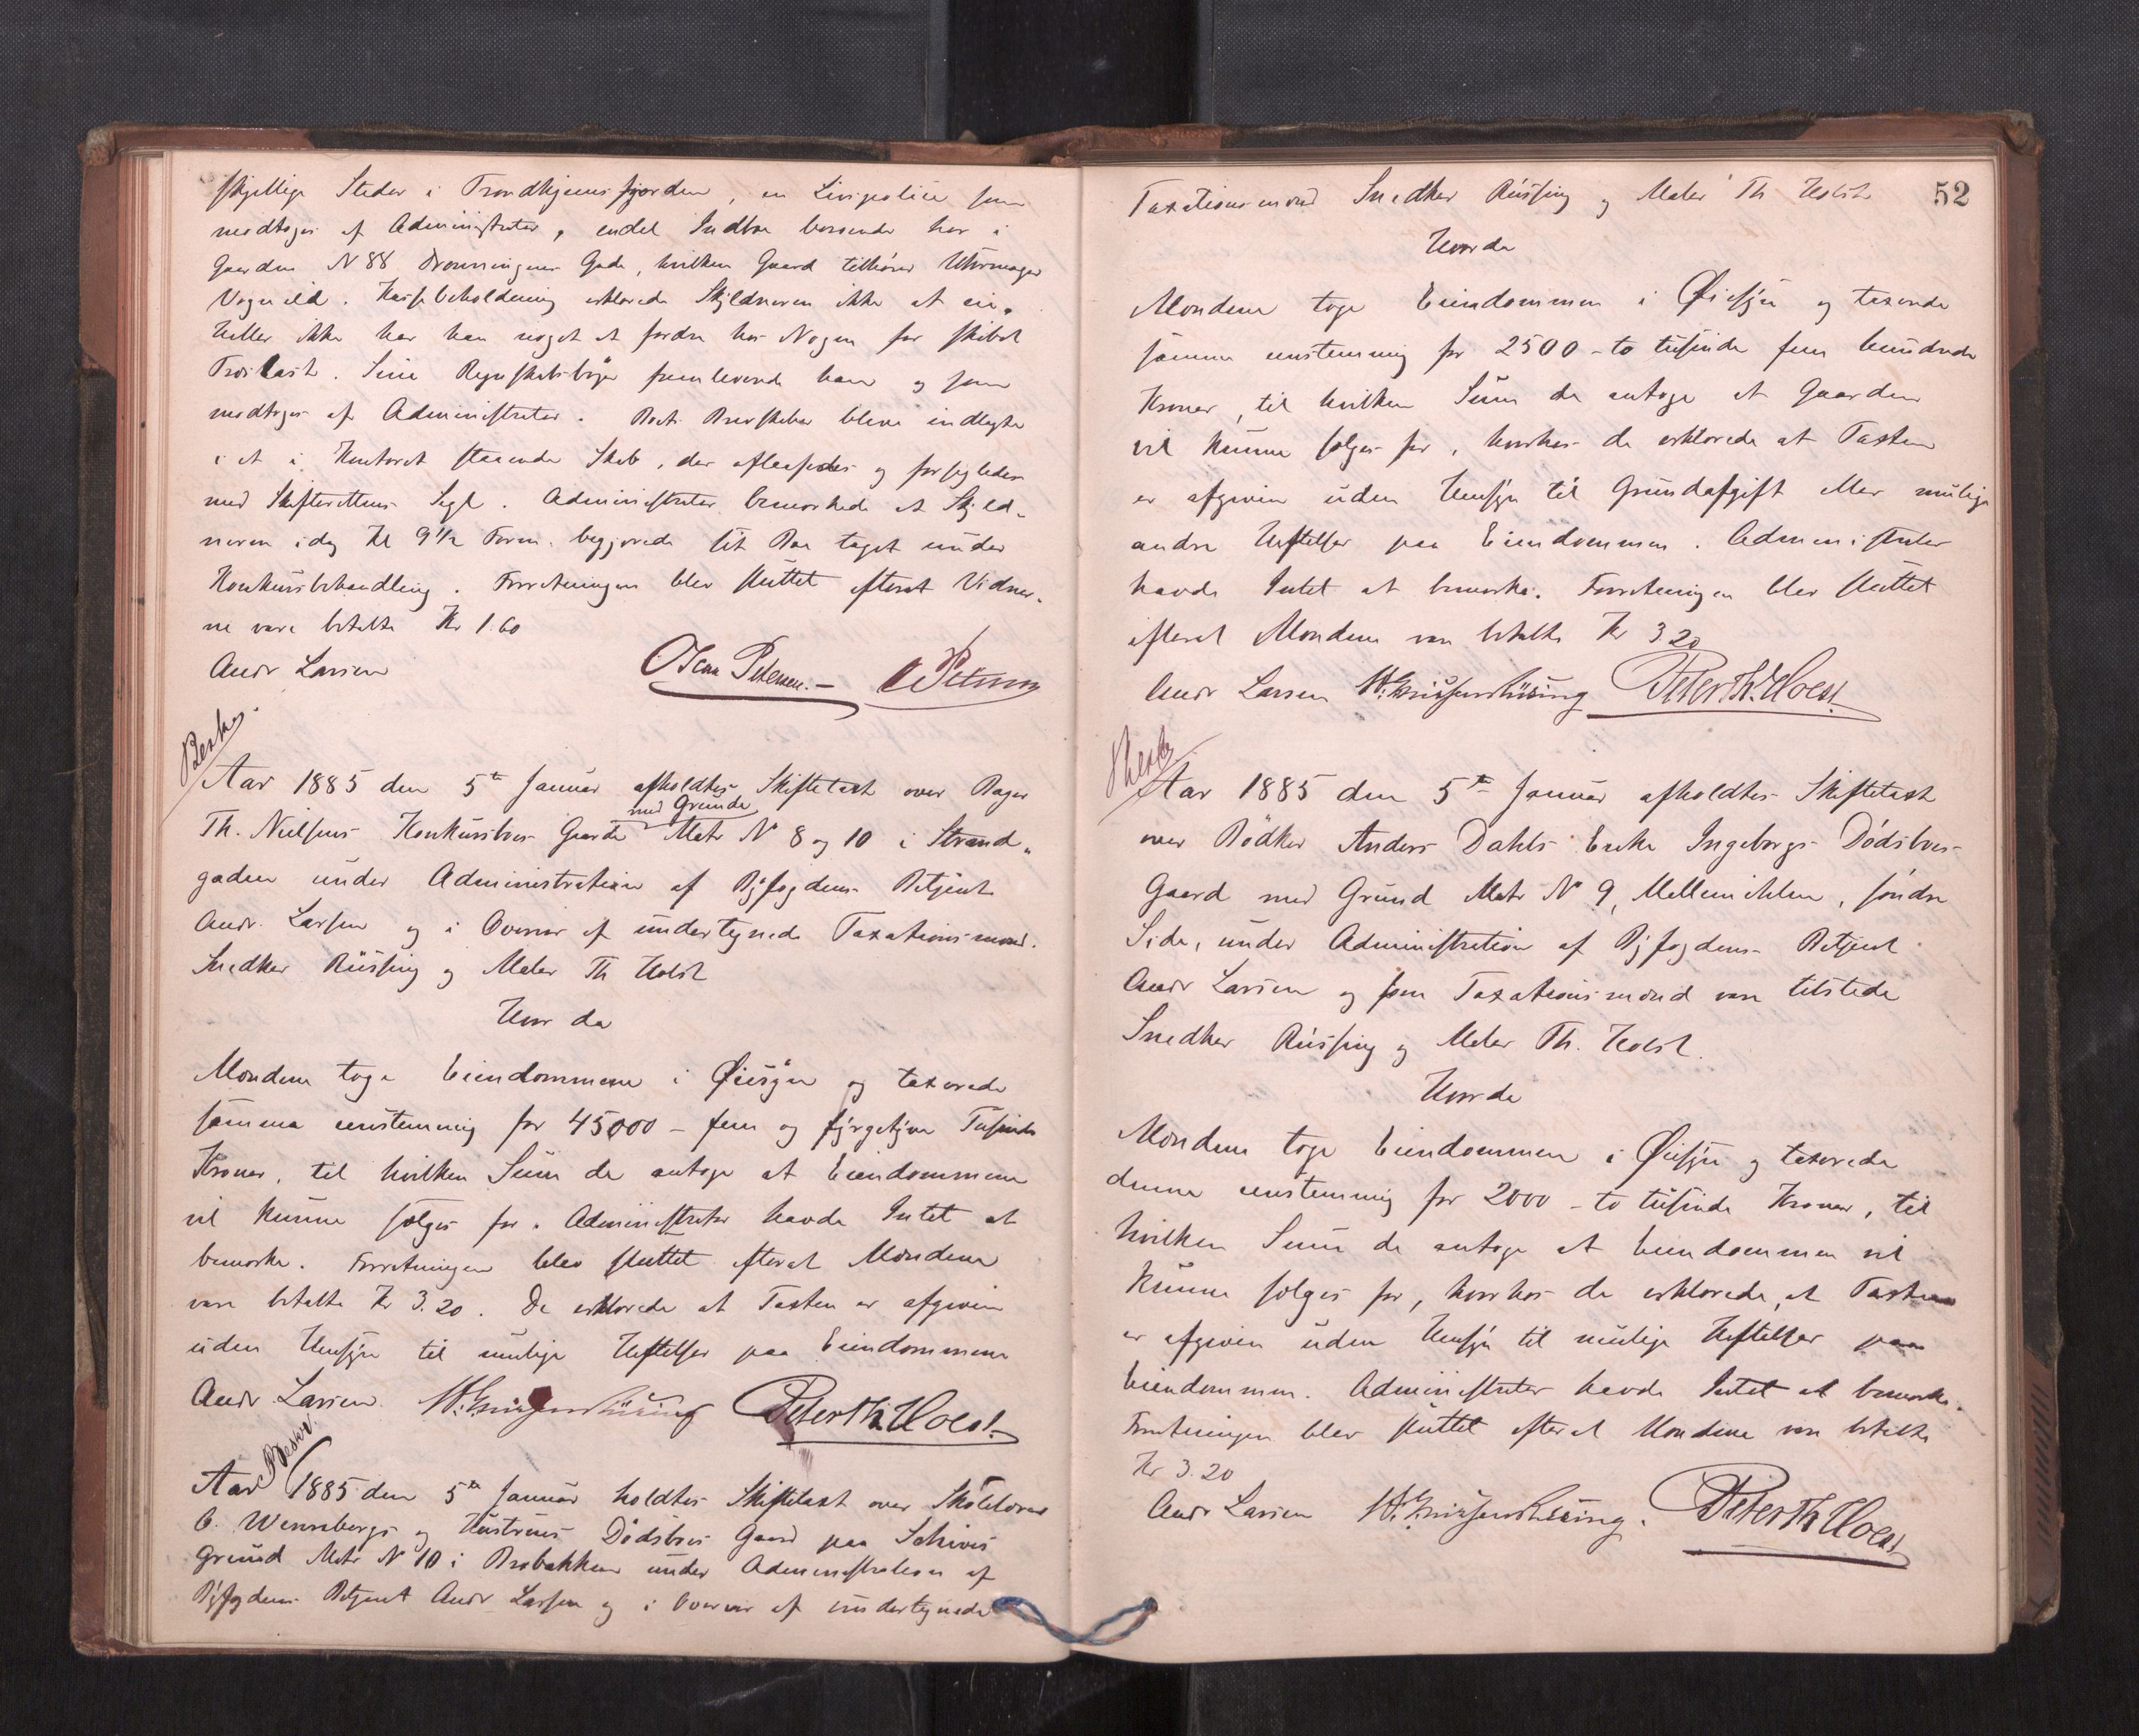 skjellige Steder i Trondhjemsfjorden, en Livspolice som
modtoges af Administrator, endel Indboe beroende her i
Gaarden N 88 Dronningens Gade, hvilken Gaard tilhører Uhrmager
Vognild. Kassebeholdning erklærede Skyldneren ikke at eie,
heller ikke har han noget at fordre hos Nogen for skibet
Trolast. Sine Regnskabsbøger fremleverede han og som
modtoges af Administrator. Boets Brevskaber bleve indlagte
i et i Kontoret staaende Skab, der aflaasedes og forsegledes
med Skifterettens Segl. Administrator bemærkede at Skyld-
neren idag Kl 9½ Form. begjærede sit Bo taget under
Konkursbehandling. Forretningen blev sluttet efterat Vidner-
ne vare betalte Kr 1.60
Andr Larsen Oscar Petersen.- Petersen
Besk.
Aar 1885 den 5te Januar afholdtes Skiftetaxt over Bager
Th. Nielsens Konkursboes Gaarde med Grunde Matr N 8 og 10 i Strand-
gaden under Administration af Byfogdens Betjent
Andr. Larsen og i Overvær af undertegnede Taxationsmænd.
Snedker Rüssing og Maler Th Holst
Hvor da
Mændene toge Eiendommene i Øiesyn og taxerede
samme eenstemmig for 45000 - fem og fyrgetyve Tusinde
Kroner, til hvilken Sum de antoge at Eiendommene
vil kunne sælges for. Administrator havde Intet at
bemærke. Forretningen blev sluttet efterat Mændene
vare betalte Kr 3.20. De erklærede at Taxten er afgiven
uden Hensyn til mulige Heftelser paa Eiendommene
Andr. Larsen Rüssing Peter Th. Holst
Beskr.
Aar 1885 den 5te Januar holdtes Skiftetaxt over Skolelærer
O. Wennebergs og Hustrues Dødsboes Gaard paa
Grund Matr N 10 i Brobakken under Administration af
Byfogdens Betjent Andr Larsen og i Overvær af undertegnede
52
Taxationsmænd Snedker Rüssing og Maler Th Holst
Hvorda
Mændene toge Eiendommen i Øiesyn og taxerede
samme eenstemmig for 2500 - to tusinde fem hundrede
Kroner, til hvilken Sum de antoge at Gaarden
vil kunne sælges for, hvorhos de erklærede at Taxten
er afgiven uden Hensyn til Grundafgift eller mulige
andre Heftelser paa Eiendommen. Administrator
havde Intet at bemærke. Forretningen blev sluttet
efterat Mændene var betalte Kr 3.20
Andr Larsen Rüssing Peter Th. Holst
Besk
Aar 1885 den 5te Januar afholdtes Skiftetaxt
over Bødker Anders Dahls Enke Ingeborgs Dødsboes
Gaard med Grund Matr N 9, Mellemilen, søndre
Side, under Administration af Byfogdens Betjent
Andr Larsen og som Taxationsmænd var tilstede
Snedker Rüssing og Maler Th. Holst.
Hvorda
Mændene toge Eiendommen i Øiesyn og taxerede
denne eenstemmig for 2000 - to tusinde Kroner, til
hvilken Sum de antoge at Eiendommen vil
kunne sælges for, hvorhos de erklærede, at Taxten
er afgiven uden Hensyn til mulige Heftelser paa
Eiendommen. Administrator havde Intet at bemærke.
Forretningen blev sluttet efterat Mændene var betalte
Kr 3.20
Andr Larsen Rüssing. Peter Th Holst